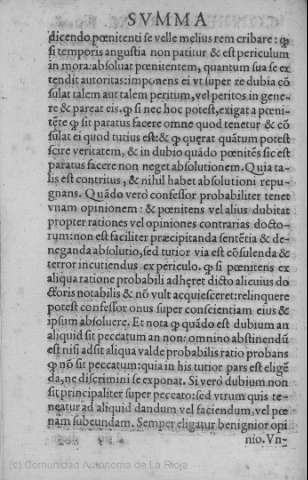 SVMMA
dicendo pœnitenti se velle melius rem cribare: ꝙ
si temporis angustia non patitur & est periculum
in mora: absoluat pœnitentem, quantum sua se ex
tendit autoritas: imponens ei vt super re dubia cō
sulat talem aut talem peritum, vel peritos in gene-
re & pareat eis. ꝙ si nec hoc potest, exigat a pœni-
tēte ꝙ sit paratus facere omne quod tenetur & cō
sulat ei quod tutius est: & ꝙ querat quātum potest
scire veritatem, & in dubio quādo pœnitēs sic est
paratus facere non neget absolutionem. Quia ta-
lis est contritus, & nihil habet absolutioni repu-
gnans. Quādo verò confessor probabiliter tenet
vnam opinionem: & pœnitens vel alius dubitat
propter rationes vel opiniones contrarias docto-
rum: non est faciliter præcipitanda sentētia & de-
neganda absolutio, sed tutior via est cōsulenda &
terror incutiendus ex periculo. ꝙ si pœnitens ex
aliqua ratione probabili adhęret dicto alicuius do
ctoris notabilis & nō vult acquiescere: relinquere
potest confessor onus super conscientiam eius &
ipsum absoluere. Et nota ꝙ quādo est dubium an
aliquid sit peccatum an non: omnino abstinendū
est nisi adsit aliqua valde probabilis ratio probans
ꝙ nō sit peccatum: quia in his tutior pars est eligē
da, ne discrimini se exponat. Si verò dubium non
sit principaliter super peccato: sed vtrum quis te-
neatur ad aliquid dandum vel faciendum, vel pœ
nam subeundam. Semper eligatur benignior opi
nio. Vn-
(c) Comunidad Autónoma de La Rioja